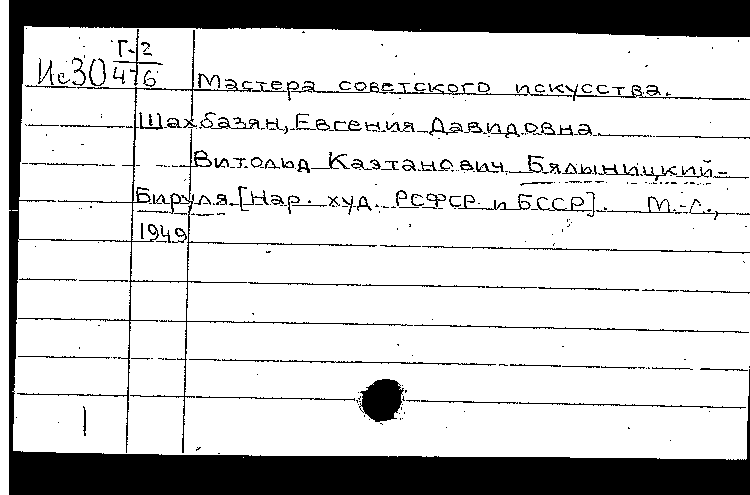 Г-2
Ис30 476 Мастера советского искусства.
Шахбазян, Евгения Давидовна.
Витольд Каэтанович Бялыницкий-
Бируля. [Нар. худ. РСФСР и БССР]. М.-Л.,
1949
1